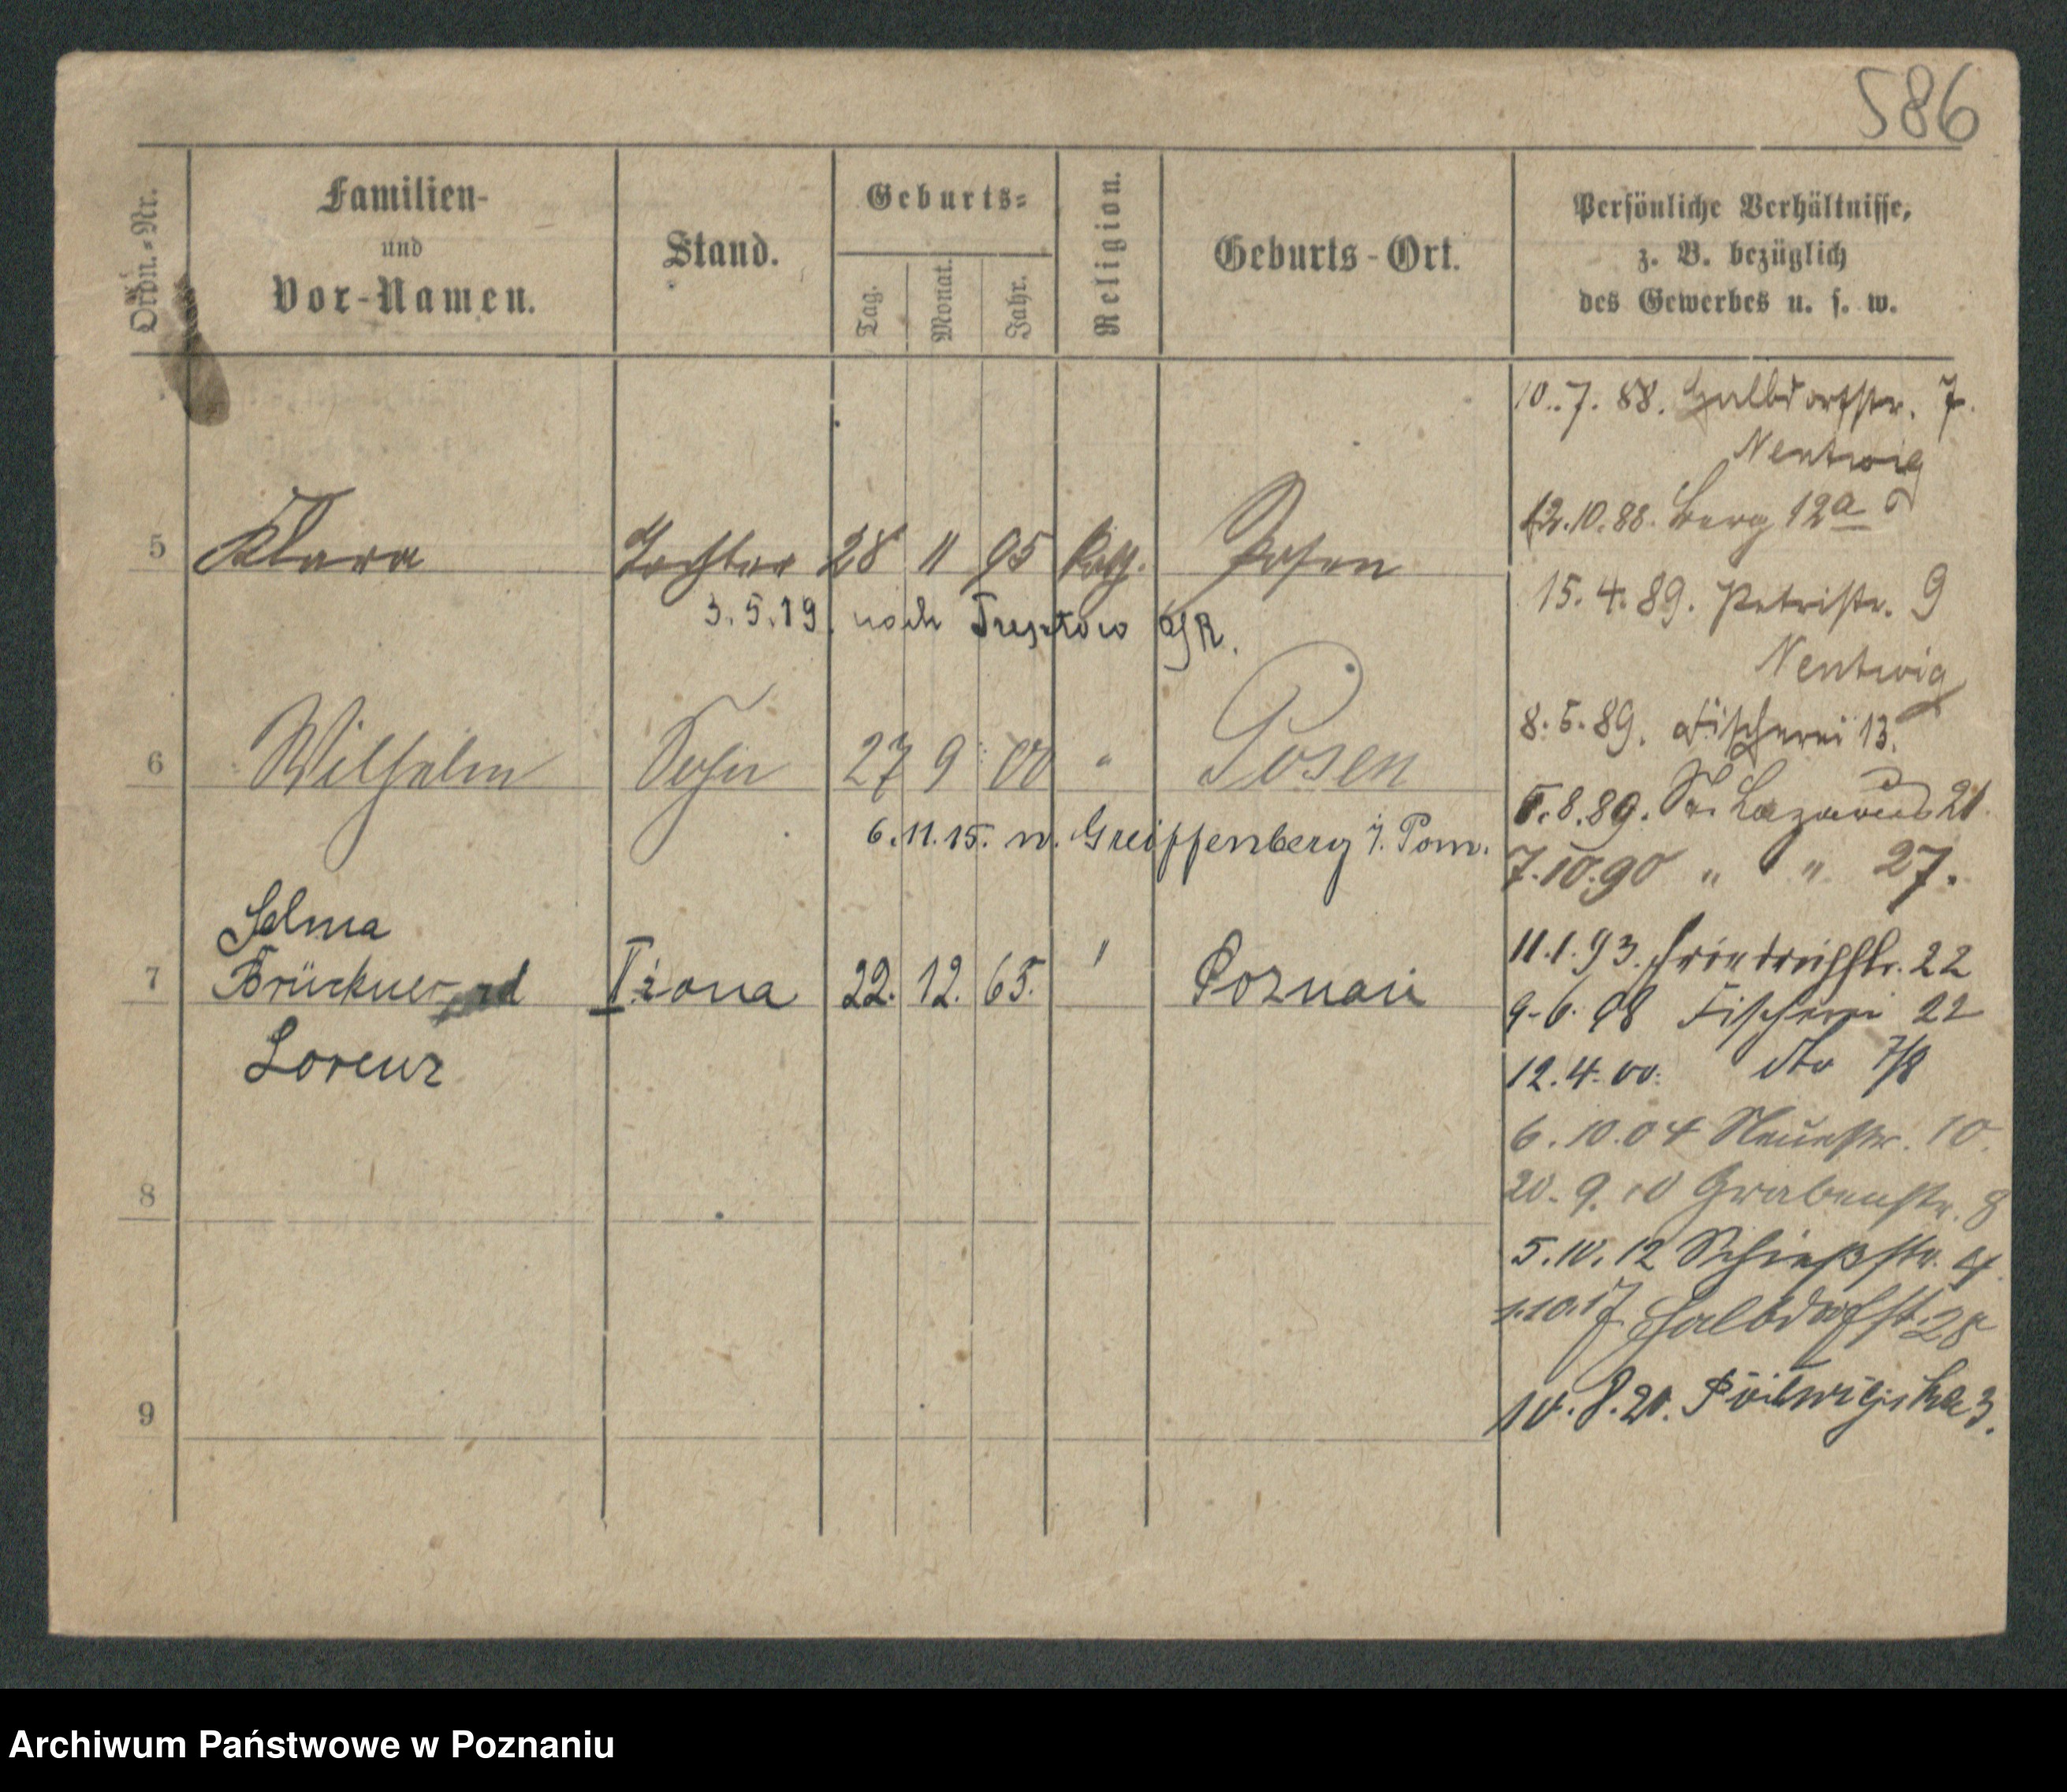 586
Ordn.-Nr.
Familien-
und
Vor-Namen.
Stand.
Geburts-
Tag.
Monat.
Jahr.
Religion.
Geburts-Ort.
Persönliche Verhältnisse,
z. B. bezüglich
des Gewerbes u. s. w.
10.7.88. Halbdorfstr. 7.
Nentwig
5 Klara Tochter 28 11 95 kath. Posen
12.10.88. Berg 12a
3.5.19. nach Treptow a/R.
15.4.89. Petristr. 9
Nentwig
8.5.89. Fischerei 13.
6 Wilhelm Sohn 27 9 00 " Posen
5.8.89. St. Lazarus 21.
6.11.15. n. Greiffenberg i. Pom.
7.10.90 " " 27.
Selma
7 Brückner żona 22. 12. 65. " Poznań
Lorenz
11.1.93. Friedrichstr. 22
9.6.98 Fischerei 22
12.4.00. dto 7/8
6.10.04 Neuestr. 10.
8
20.9.10 Grabenstr. 8
5.10.12 Schießstr. 4.
1.10.17 Halbdorfstr. 28
9
10.8.20. 3.
Archiwum Państwowe w Poznaniu